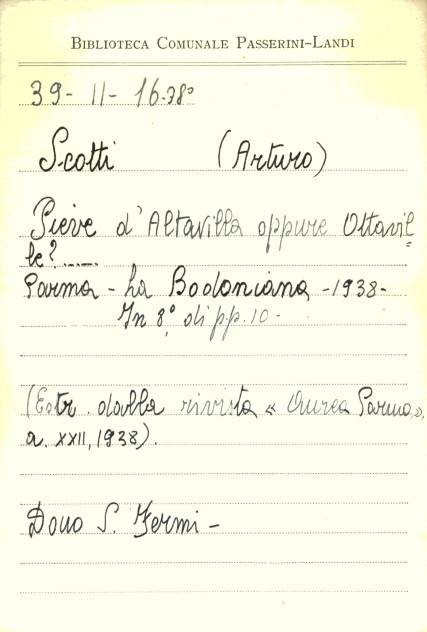 BIBLIOTECA COMUNALE PASSERINI-LANDI
39- II- 16.38º
Scotti (Arturo)
Pieve d'Altavilla oppure Ottavil=
le?......
Parma - La Bodoniana - 1938-
In 8º di pp. 10 -
(Estr. dalla rivista « Aurea Parma»,
a. XXII, 1938).
Dono S. Fermi -